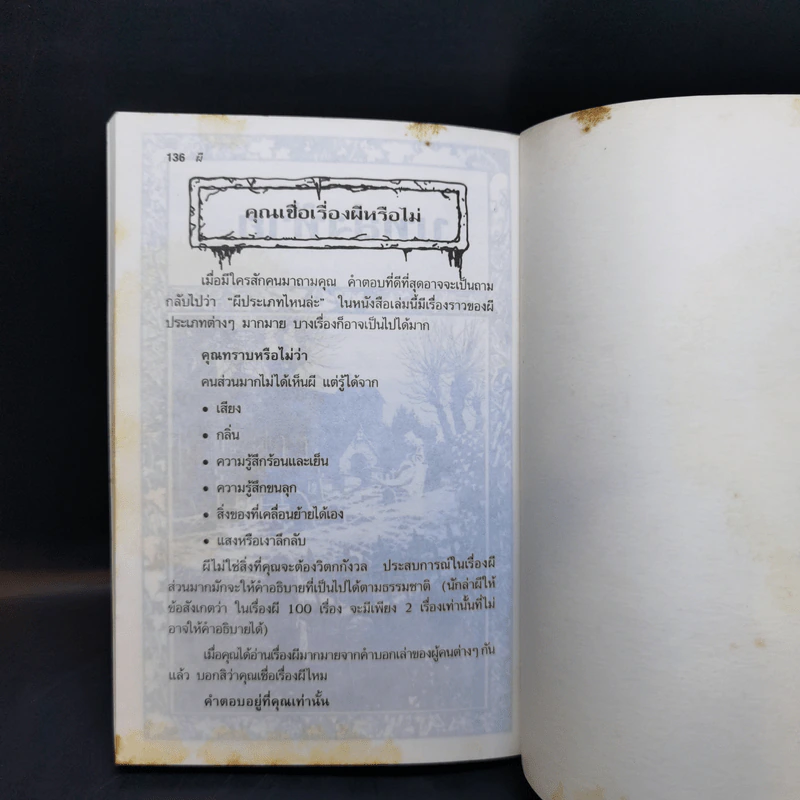 136 ผี
คุณเชื่อเรื่องผีหรือไม่
เมื่อมีใครสักคนมาถามคุณ คำตอบที่ดีที่สุดอาจจะเป็นถาม
กลับไปว่า “ผีประเภทไหนล่ะ” ในหนังสือเล่มนี้มีเรื่องราวของผี
ประเภทต่างๆ มากมาย บางเรื่องก็อาจเป็นไปได้มาก
คุณทราบหรือไม่ว่า
คนส่วนมากไม่ได้เห็นผี แต่รู้ได้จาก
• เสียง
• กลิ่น
• ความรู้สึกร้อนและเย็น
• ความรู้สึกขนลุก
• สิ่งของที่เคลื่อนย้ายได้เอง
• แสงหรือเงาลึกลับ
ผีไม่ใช่สิ่งที่คุณจะต้องวิตกกังวล ประสบการณ์ในเรื่องผี
ส่วนมากมักจะให้คำอธิบายที่เป็นไปได้ตามธรรมชาติ (นักล่าผีให้
ข้อสังเกตว่า ในเรื่องผี 100 เรื่อง จะมีเพียง 2 เรื่องเท่านั้นที่ไม่
อาจให้คำอธิบายได้)
เมื่อคุณได้อ่านเรื่องผีมากมายจากคำบอกเล่าของผู้คนต่างๆ กัน
แล้ว บอกสิว่าคุณเชื่อเรื่องผีไหม
คำตอบอยู่ที่คุณเท่านั้น